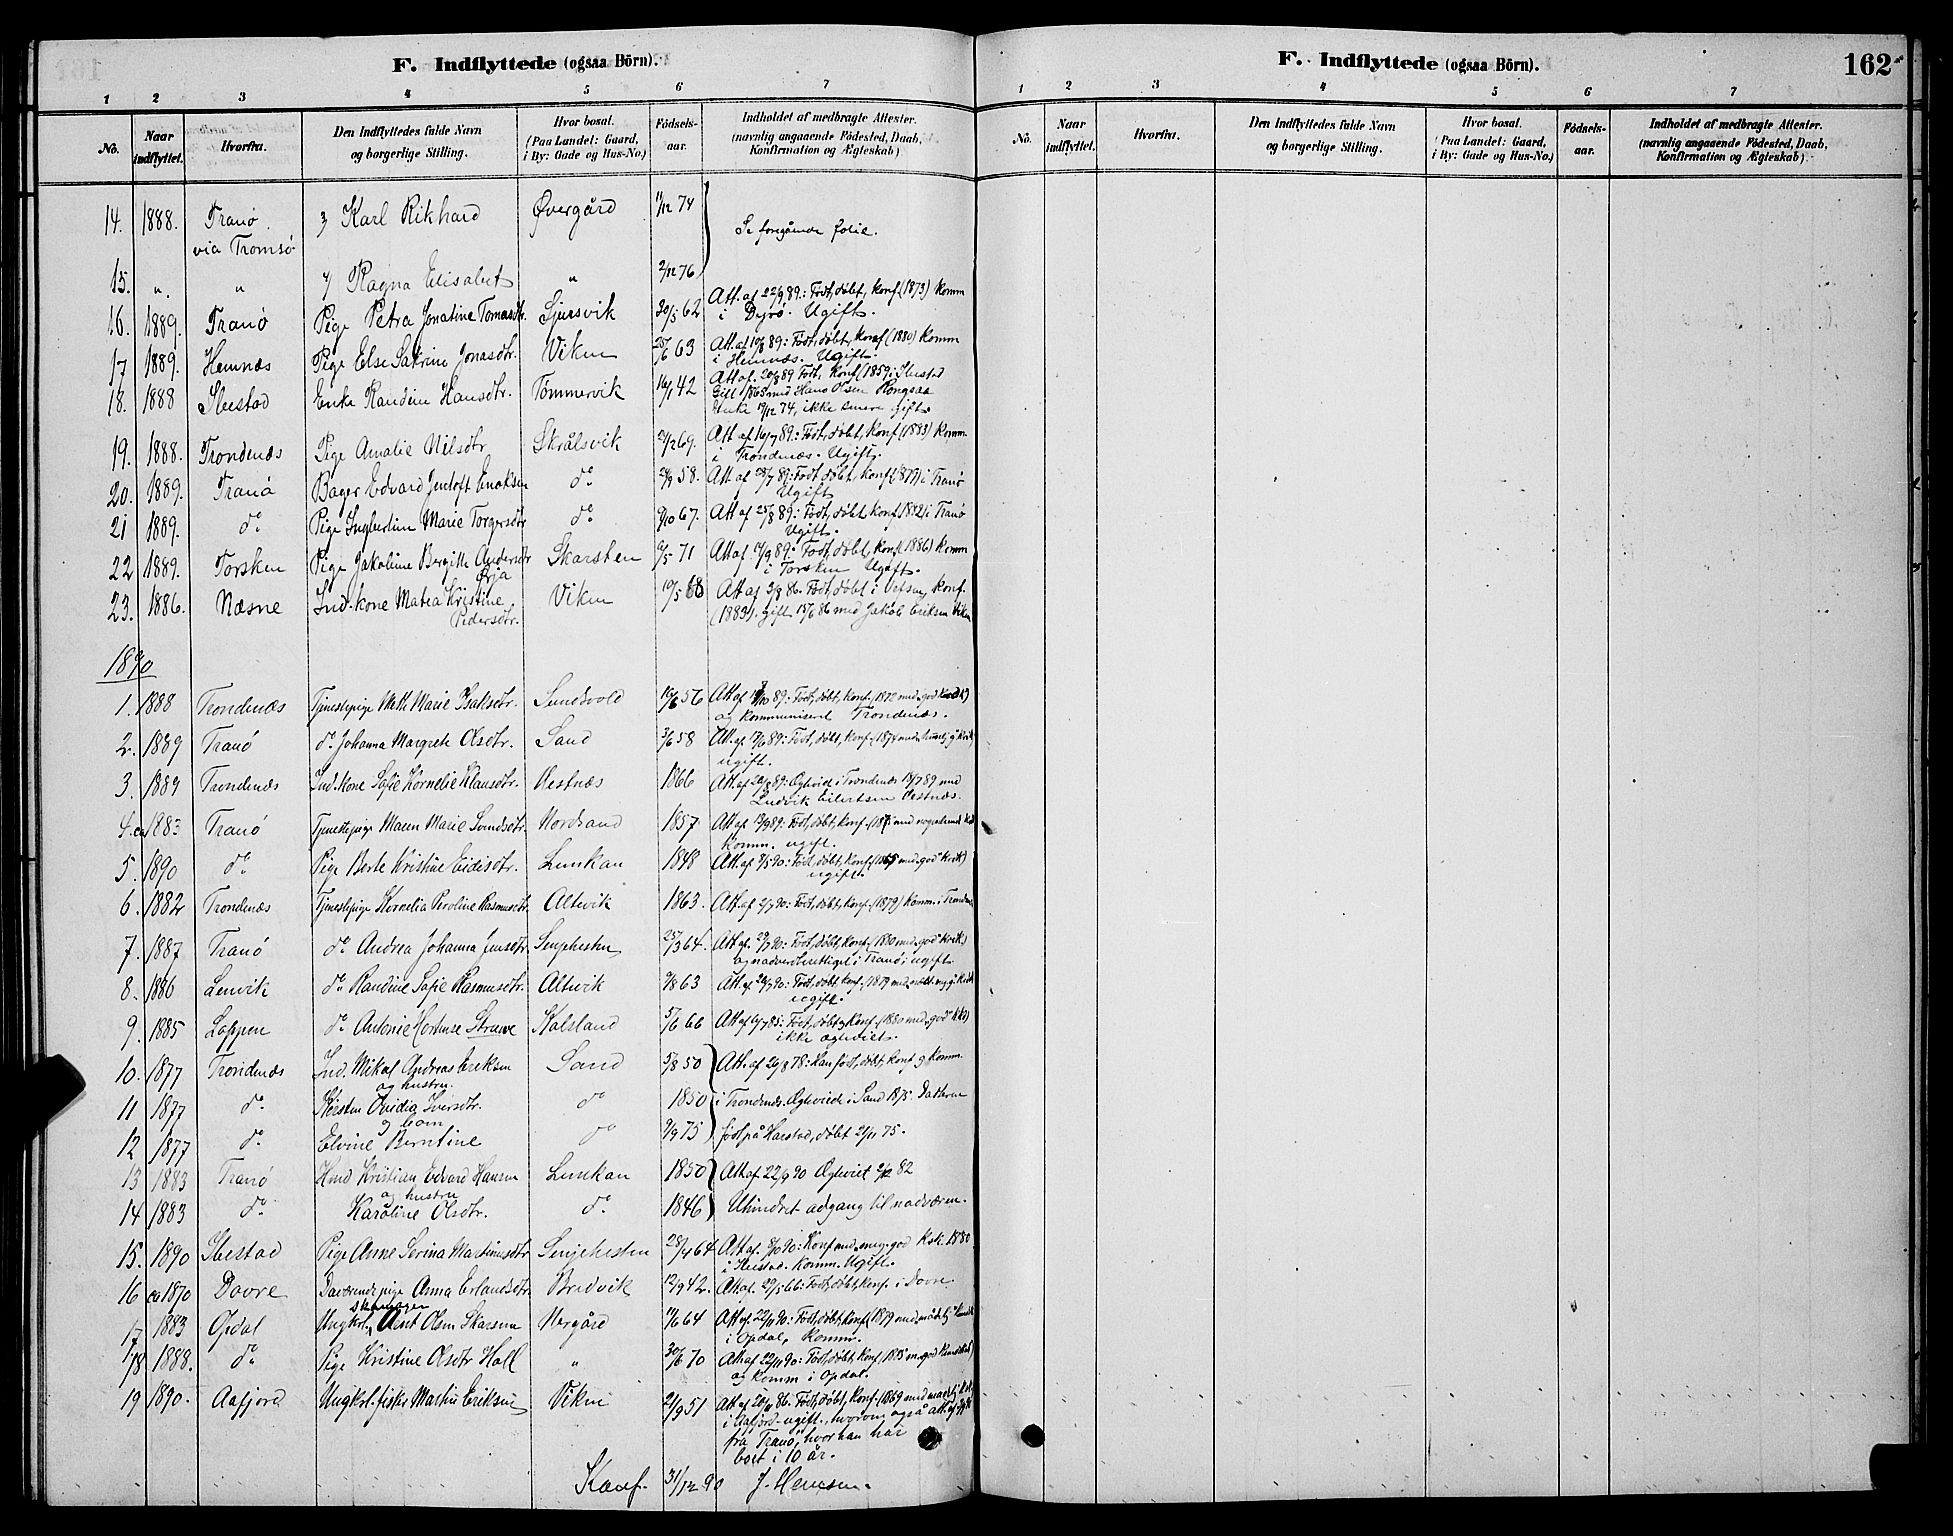 F. Indflyttede (ogsaa Börn).
1 2 3 4 5 6 7
No. Naar indflyttet. Hvorfra. Den Indflyttedes fulde Navn og borgerlige Stilling. Hvor bosat. (Paa Landet: Gaard, i By: Gade og Hus-No.) Födsels-aar. Indholdet af medbragte Attester. (navnlig angaaende Födested, Daab, Konfirmation og Ægteskab)
14. 1888. Tranö 3) Karl Rikhard Øvergård 11/12 74 Se foregående folie.
via Tromsö
15. " " 4) Ragna Elisabet " 2/12 76
16. 1889. Tranö Pige Petra Jonatine Tomasdtr. 30/5 62 Att. af 22/9 89: Födt, döbt, konf (1873) komm
i Dyrö. Ugift.
17 1889. Hemnæs Pige Else Katrine Jonasdtr. Viken 25/6 63 Att. af 10/8 89: Födt, döbt, konf (1880) komm
i Hemnæs. Ugift.
18. 1888 Ibestad Enke Randine Hansdtr. Tömmervik 16/1 42 Att af. 20/8 89 Födt, konf (1859 i Ibestad
Gift 1865 med Hans Olsen
Enke 19/12 74, ikke senere gift.
19. 1888. Trondenæs Pige Amalie Nilsdtr Skrålsvik 2/2 69. Att af 16/7 89: Födt, döbt, konf (1883) komm.
i Trondenæs. Ugift.
20. 1889. Tranö Bager Edvard Jentoft Enoksen do 58. Att af 28/7 89: Födt, döbt, konf (1873) i Tranö
Ugift
21 1889. do Pige Ingbertine Marie Torgersdtr do 9/10 67. Att af 25/8 89: Födt, döbt, konf (1882) i Tranö
Ugift.
22 1889. Torsken Pige Jakobine Bergitte Andersdtr Skarsten 6/5 71 Att af 17/9 89: Födt, döbt, konf (1886) komm
i Torsken Ugift.
23. 1886. Næsne Ind. kone Matea Kristine Viken 19/5 68 Att af 3/8 86. Födt, döbt i Vefsen, konf.
Pedersdtr. (1883). gift 15/6 86 med Jakob Eriksen Viken
1890
1. 1888 Trondenæs Tjenestepige Meth Marie Isaksdtr. Sundsvold 16/6 56 Födt, döbt, konf. 1872 med god
og kommuniseret Trondenæs.
2. 1889 Tranö do Johanna Margrete Olsdtr. Sand 3/6 58 Att. af 17/6 89: Födt, döbt, konf. (1874 med
ugift.
3. 1889 Trondenæs Ind. kone Sofie Kornelie Klausdtr. Vestnæs 1866 Att. af 20/8 89: Ægteviet i Trondenæs 18/7 89 med
Ludvik Eilertsen Vestnæs.
4. ca 1883 Tranö Tjenestepige Maren Marie Svendsdtr. Nordsand 1857 Att. af 13/9 89: Födt, döbt, konf. med
komm. ugift.
5 1890 do Pige Berte Kristine Eidisdtr. Lemkan 1848 Födt, döbt, konf. (1865 med god
ugift.
6. 1882 Trondenæs Tjenestepige Kornelia Peroline Rasmusdtr Altevik 1863. Födt, döbt, konf. (1879) komm. i Trondenæs
7. 1887 Tranö do Andrea Johanna Jensdtr. Senjehesten 25/3 64. Att. af 29/7 90: Födt, döbt, konf. 1880 med god
og nadverberettiget i Tranö; ugift.
8. 1886 Lenvik do Randine Sofie Rasmusdtr. Altevik 9/8 63 Födt, döbt, konf. (1879 med
ugift.
9. 1885 Loppen do Antonie Hortense Struwe Kalsland 5/6 66 Födt, döbt, konf. (1880 med god
ikke ægteviet.
10. 1877 Trondenæs Ind. Mikal Andreas Eriksen Sand 5/8 50 Att. af 26/8 78: Han födt, döbt, konf og komm.
og hustru
11 1877 do Kirsten Ovidia Iversdtr. do 1850 i Trondenæs. Ægteviede i Sand 1875. Datteren
og barn
12 1877 do Elvine Berntine do 9/9 75 födt på Harstad, döbt 2/11 75.
13 1883 Tranö Hmd Kristian Edvard Hansen Lemkan 1850 Att af 22/9 90 Ægteviet 82
og hustru
14 1883 do Karoline Olsdtr. do 1846 Uhindret adgang til nadveren.
15. 1890 Ibestad Pige Anne Serina Martinusdtr Senjehesten 28/4 64 Att. af 8/10 90: Konf med meg. god Ksk. 1880
i Ibestad. komm. Ugift.
16 ca 1870 Dovre pige Anna Erlandsdtr Bredvik 12/9 42. Att. af. 29/5 66: Födt, döbt, konf. i Dovre.
skomager
17 1883 Opdal Ungkrl. Arnt Olsen Skarsem Nergård 11/6 64 Att. af 22/11 90: Födt, döbt, konf. (1879 med
i Opdal, komm.
18 1888. do Pige Kristine Olsdtr Hall " 30/6 70 Att. af 22/11 90: Födt, döbt, konf. 1885 m. god kundskab
og komm i Opdal.
19 1890. Aafjord Ungkrl. fisker Martin Eriksen Viken 2/9 51 Att. af 20/11 86. Födt, döbt, konf. (1869 med
i Aafjord - ugift., hvorom også att. af
fra Tranö, hvor han har
boet i 10 år.
Konf. 31/12 90 J. Henssen.
F. Indflyttede (ogsaa Börn). 162
1 2 3 4 5 6 7
No. Naar indflyttet. Hvorfra. Den Indflyttedes fulde Navn og borgerlige Stilling. Hvor bosat. (Paa Landet: Gaard, i By: Gade og Hus-No.) Födsels-aar. Indholdet af medbragte Attester. (navnlig angaaende Födested, Daab, Konfirmation og Ægteskab)